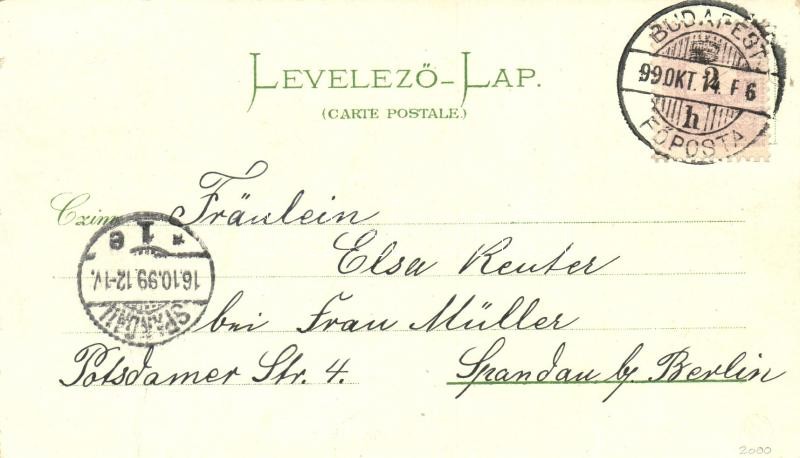 LEVELEZŐ-LAP.
(CARTE POSTALE.)
BUDAPEST
99 OKT. 14. F 6
h
FŐPOSTA
Czim
Fräulein
Elsa Reuter
bei Frau Müller
Potsdamer Str. 4. Spandau b/ Berlin
SPANDAU
16.10.99.12-1V.
* 1 e
2000